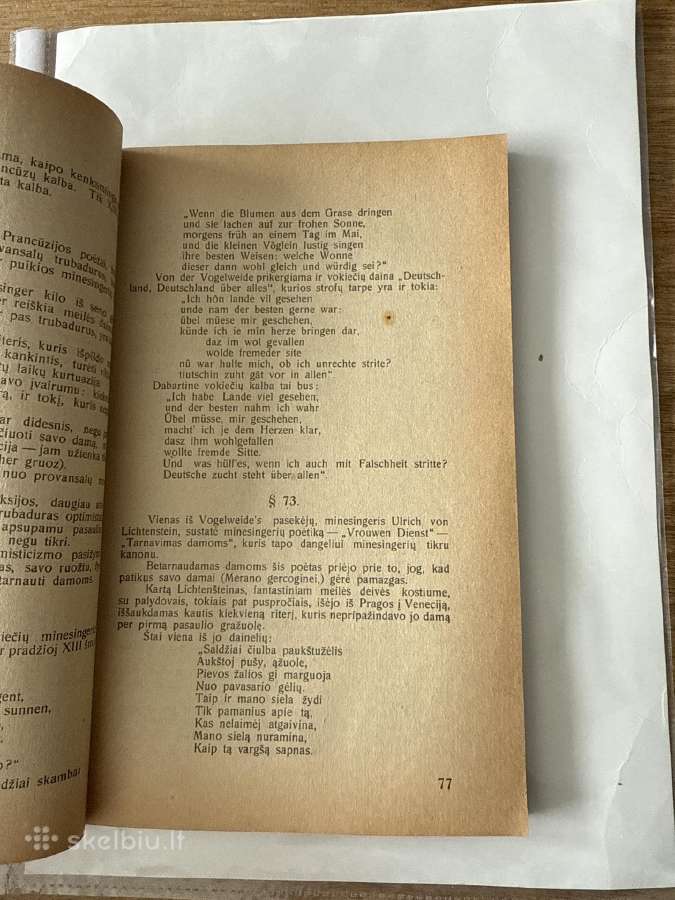 ama, kaipo kenksminga
ancūzų kalba. Tik XII
ta kalba.
Prancūzijos poėtai
vansalų trubadurus,
r puikios minesingerių
singer kilo iš seno
er reiškia meilės
pas trubadurus, yra
iteris, kuris išpildo
kankintis, turėti
tų laikų kurtuazija
avo įvairumu:
ą, ir tokį, kuris
ar didesnis, negu
čiuoti savo damą,
cija — jam užtenka
her gruoz).
nuo provansalų
ksijos, daugiau
rubaduras optimist
apsupamu pasauliu
negu tikri.
nisticizmo pasižym
as, savo ruožiu,
etarnauti damoms
kiečių minesingerių
r pradžioj XIII šm.
gent,
sunnen,
o?"
džiai skambai
„Wenn die Blumen aus dem Grase dringen
und sie lachen auf zur frohen Sonne,
morgens früh an einem Tag im Mai,
und die kleinen Vöglein lustig singen
ihre besten Weisen: welche Wonne
dieser dann wohl gleich und würdig sei?"
Von der Vogelweide prikergiama ir vokiečių daina „Deutsch-
land, Deutschland über alles", kurios strofų tarpe yra ir tokia:
„Ich hôn lande vil gesehen
unde nam der besten gerne war:
übel müese mir geschehen,
künde ich ie min herze bringen dar,
daz im wol gevallen
wolde fremeder site
nû war hulfe mich, ob ich unrechte strite?
tiutschin zuht gât vor in allen"
Dabartine vokiečių kalba tai bus:
„Ich habe Lande viel gesehen,
und der besten nahm ich wahr
Übel müsse, mir geschehen,
macht' ich je dem Herzen klar,
dasz ihm wohlgefallen
wollte fremde Sitte.
Und was hülf'es, wenn ich auch mit Falschheit stritte?
Deutsche zucht steht über allen".
§ 73.
Vienas iš Vogelweide's pasekėjų, minesingeris Ulrich von
Lichtenstein, sustatė minesingerių poėtiką — „Vrouwen Dienst" —
„Tarnavimas damoms", kuris tapo dangeliui minesingerių tikru
kanonu.
Betarnaudamas damoms šis poėtas priėjo prie to, jog, kad
patikus savo damai (Merano gercoginei.) gėrė pamazgas.
Kartą Lichtenšteinas, fantastiniam meilės deivės kostiume,
su palydovais, tokiais pat puspročiais, išėjo iš Pragos į Veneciją,
iššaukdamas kautis kiekvieną riterį, kuris nepripažindavo jo damą
per pirmą pasaulio gražuolę.
Štai viena iš jo dainelių:
„Saldžiai čiulba paukštužėlis
Aukštoj pušy, ąžuole,
Pievos žalios gi marguoja
Nuo pavasario gėlių.
Taip ir mano siela žydi
Tik pamanius apie tą,
Kas nelaimėj atgaivina,
Mano sielą nuramina,
Kaip tą vargšą sapnas.
77
skelbiu.lt